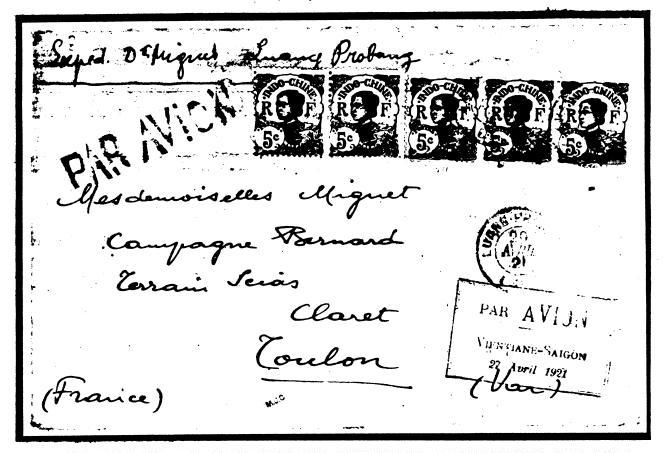 Exped. Dr Mignet Luang Probang
PAR AVION
INDO-CHINE INDO-CHINE INDO-CHINE INDO-CHINE INDO-CHINE
R F R F R F R F R F
5c 5c 5c 5c 5c
Mesdemoiselles Mignet
Campagne Bernard
Terrain
Claret
Toulon
(Var)
(France)
LUANG-PR
AVRIL
21
PAR AVION
VIENTIANE-SAIGON
27 Avril 1921
MJC